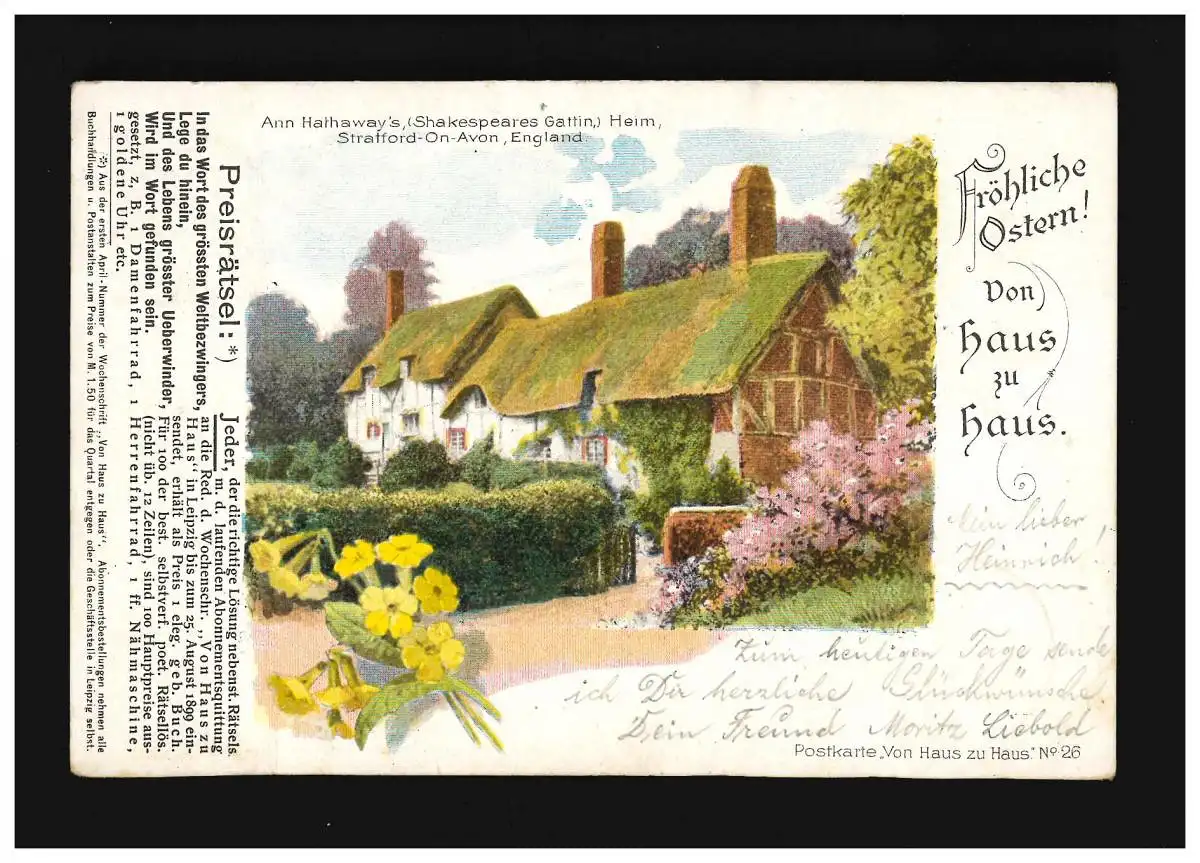 Ann Hathaway's, (Shakespeares Gattin,) Heim,
Strafford-On-Avon, England.
Fröhliche
Ostern!
Von
Haus
zu
Haus.
Mein lieber
Heinrich!
Zum heutigen Tage sende
ich Dir herzliche Glückwünsche.
Dein Freund Moritz Liebold
Postkarte „Von Haus zu Haus." No. 26
Preisrätsel: *)
In das Wort des grössten Weltbezwingers,
Lege du hinein,
Und des Lebens grösster Ueberwinder,
Wird im Wort gefunden sein.
Jeder, der die richtige Lösung nebenst. Rätsels
m. d. laufenden Abonnementsquittung
an die Red. d. Wochenschr. „Von Haus zu
Haus" in Leipzig bis zum 25. August 1899 ein-
sendet, erhält als Preis 1 eleg. geb. Buch.
Für 100 der best. selbstverf. poet. Rätsellös.
(nicht üb. 12 Zeilen), sind 100 Hauptpreise aus-
gesetzt, z. B. 1 Damenfahrrad, 1 Herrenfahrrad, 1 ff. Nähmaschine,
1 goldene Uhr etc.
*) Aus der ersten April-Nummer der Wochenschrift „Von Haus zu Haus". Abonnementsbestellungen nehmen alle
Buchhandlungen u. Postanstalten zum Preise von M. 1.50 für das Quartal entgegen oder die Geschäftsstelle in Leipzig selbst.